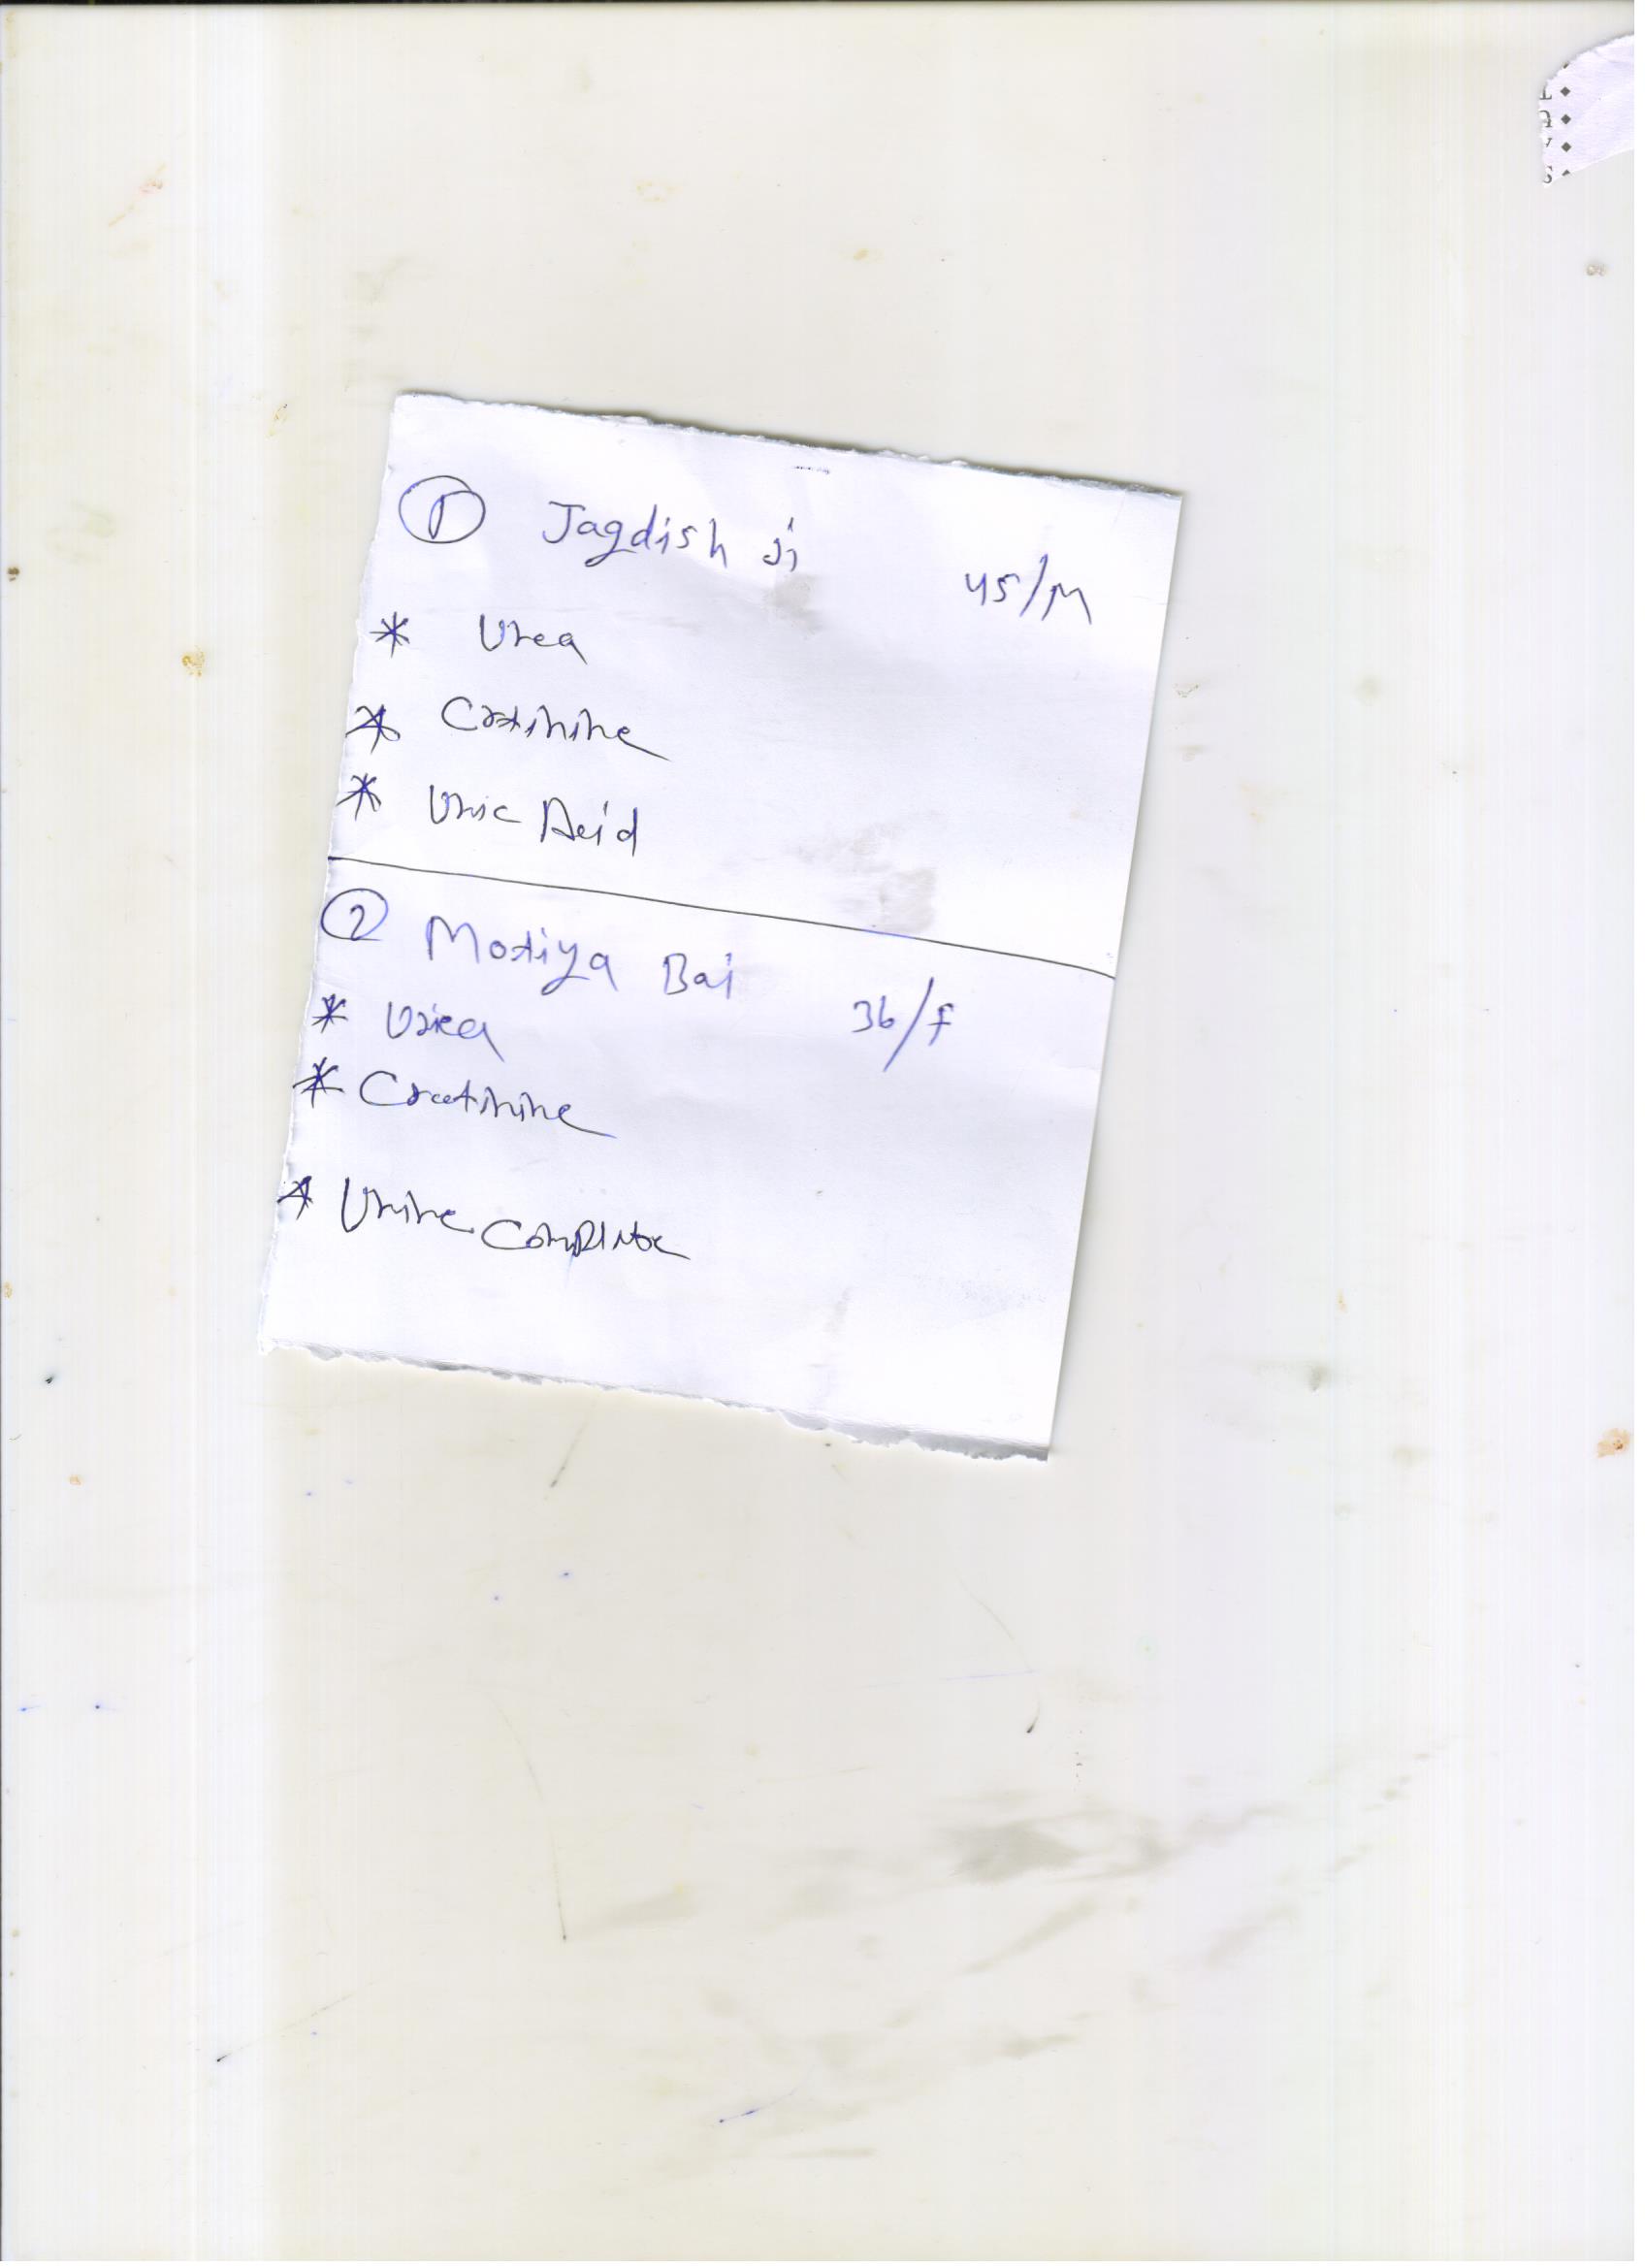 ① Jagdish ji 45/M
* Urea
* Cretinine
* Uric Acid
② Motiya Bai 36/F
* Urea
* Creetinine
* Urine Complete